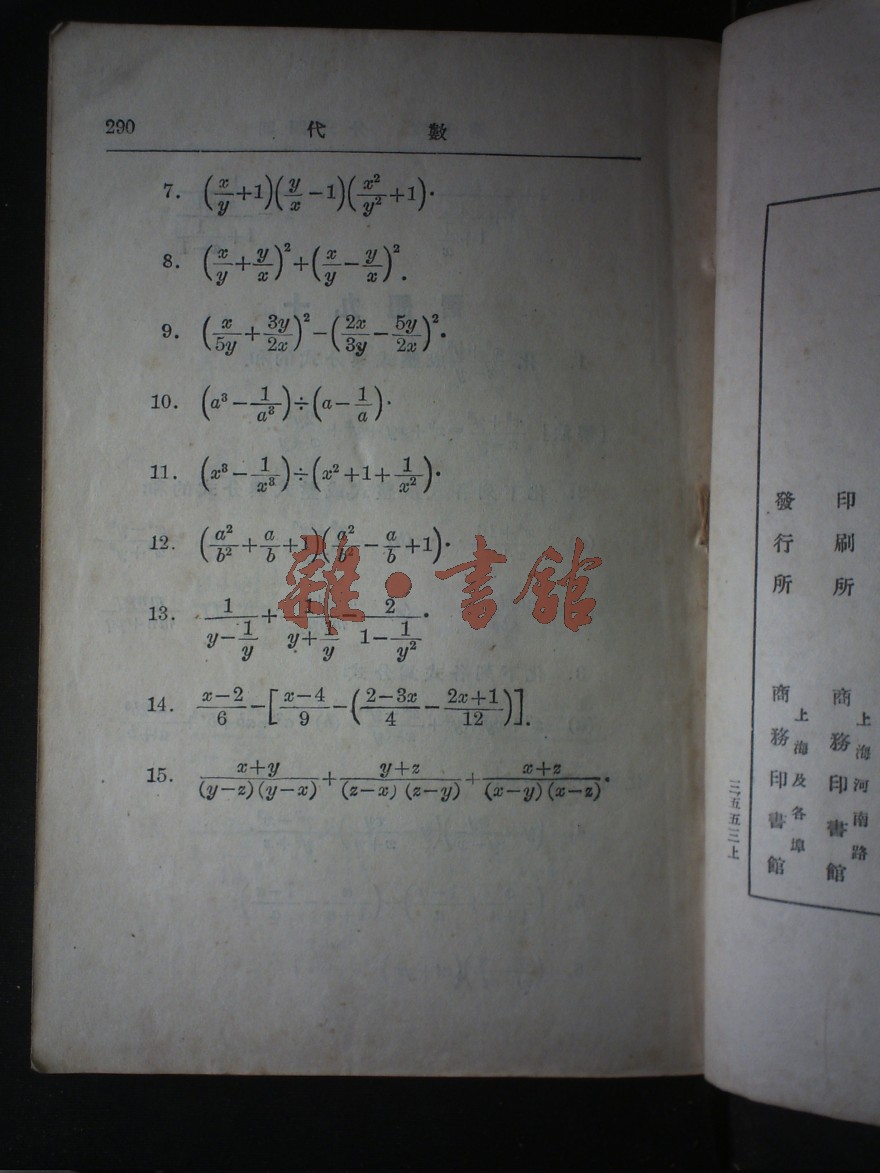 290 代 數
7. (x/y+1)(y/x−1)(x²/y²+1)·
8. (x/y+y/x)²+(x/y−y/x)².
9. (x/5y+3y/2x)²−(2x/3y−5y/2x)².
10. (a³−1/a³)÷(a−1/a)·
11. (x³−1/x³)÷(x²+1+1/x²)·
12. (a²/b²+a/b+1)(a²/b²−a/b+1)·
13. 1/(y−1/y)+1/(y+1/y) 2/(1−1/y²)·
14. (x−2)/6−[(x−4)/9−((2−3x)/4−(2x+1)/12)].
15. (x+y)/((y−z)(y−x))+(y+z)/((z−x)(z−y))+(x+z)/((x−y)(x−z))·
雜·書館
印刷所
上海河南路
商務印書館
發行所
上海及各埠
商務印書館
三五五三上